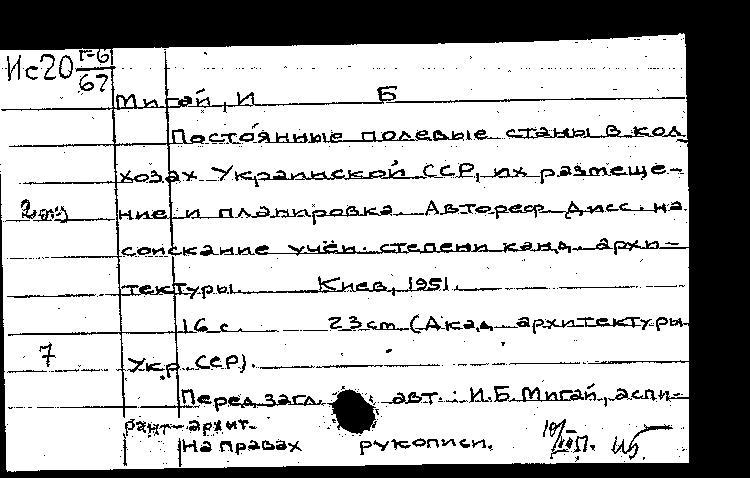 Ис20 Г-6
67
Мигай, И Б
Постоянные полевые станы в кол
хозах Украинской ССР, их размеще-
2 экз
ние и планировка. Автореф. Дисс. на
соискание учён. степени канд. архи-
тектуры. Киев, 1951.
16 с. 23 cm (Акад. архитектуры
7
Укр. ССР).
Перед загл. авт.: И.Б. Мигай, аспи-
рант-архит.
На правах рукописи.